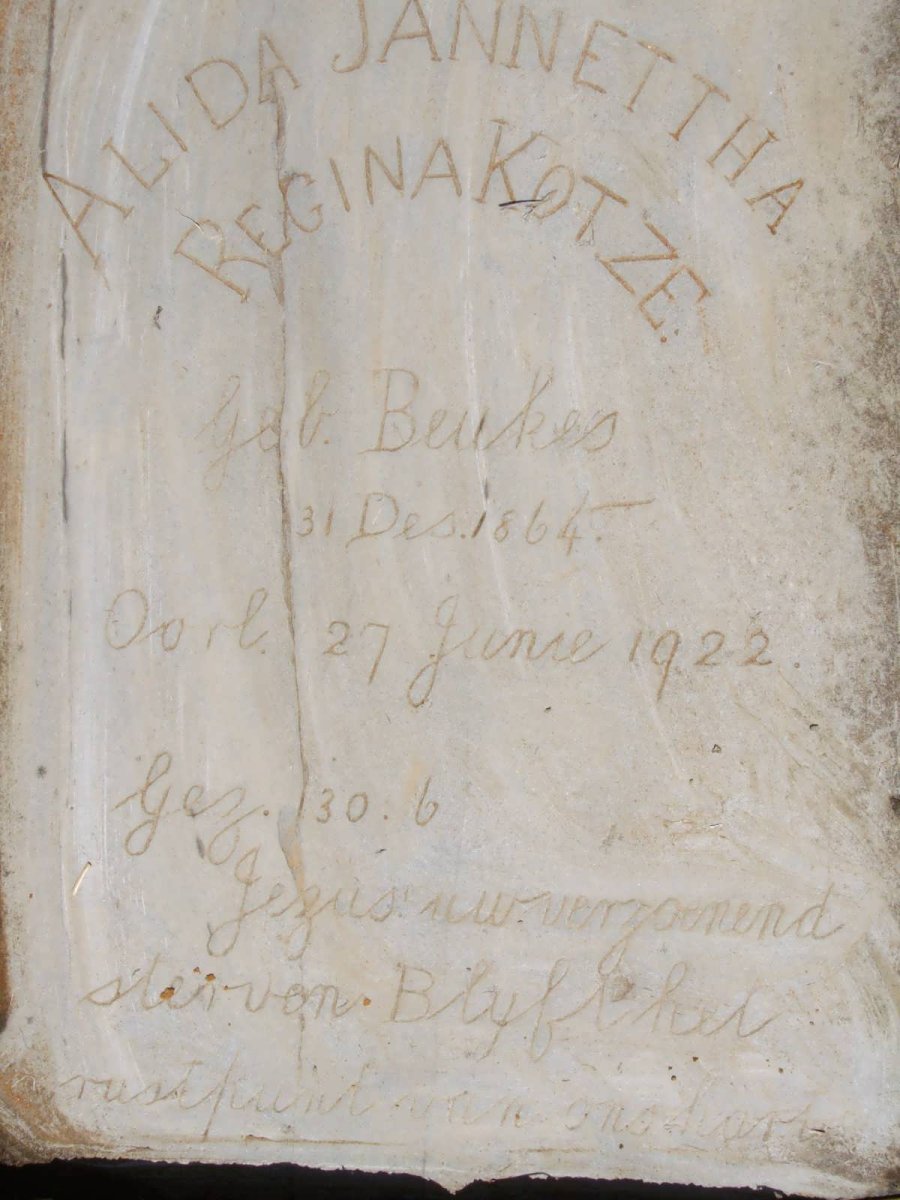 ALIDA JANNETTHA
REGINA KOTZE.
Geb. Beukes
31 Des. 1864.
Oorl. 27 Junie 1922.
Gez. 130. 6
Jezus uw verzoenend
sterven Blyft het
rustpunt van ons hart